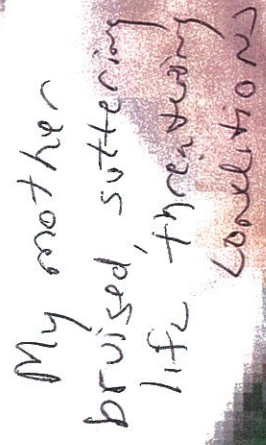 My mother
bruised, suffering
life threatening
conditions